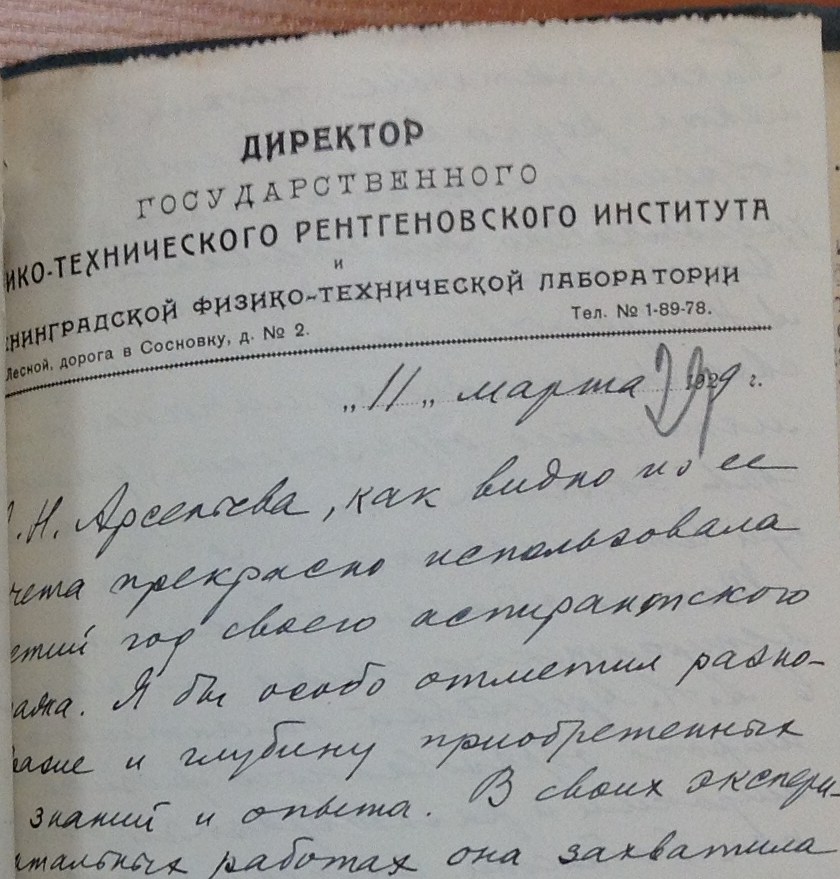 ДИРЕКТОР
ГОСУДАРСТВЕННОГО
ИКО-ТЕХНИЧЕСКОГО РЕНТГЕНОВСКОГО ИНСТИТУТА
и
НИНГРАДСКОЙ ФИЗИКО-ТЕХНИЧЕСКОЙ ЛАБОРАТОРИИ
Лесной, дорога в Сосновку, д. № 2. Тел. № 1-89-78.
„11„ марта 1929 г.
.Н. Арсеньева, как видно из ее
чета прекрасно использовала
етий год своего аспирантского
ажа. Я бы особо отметил разно-
разие и глубину приобретенных
знаний и опыта. В своих экспери-
нтальных работах она захватила